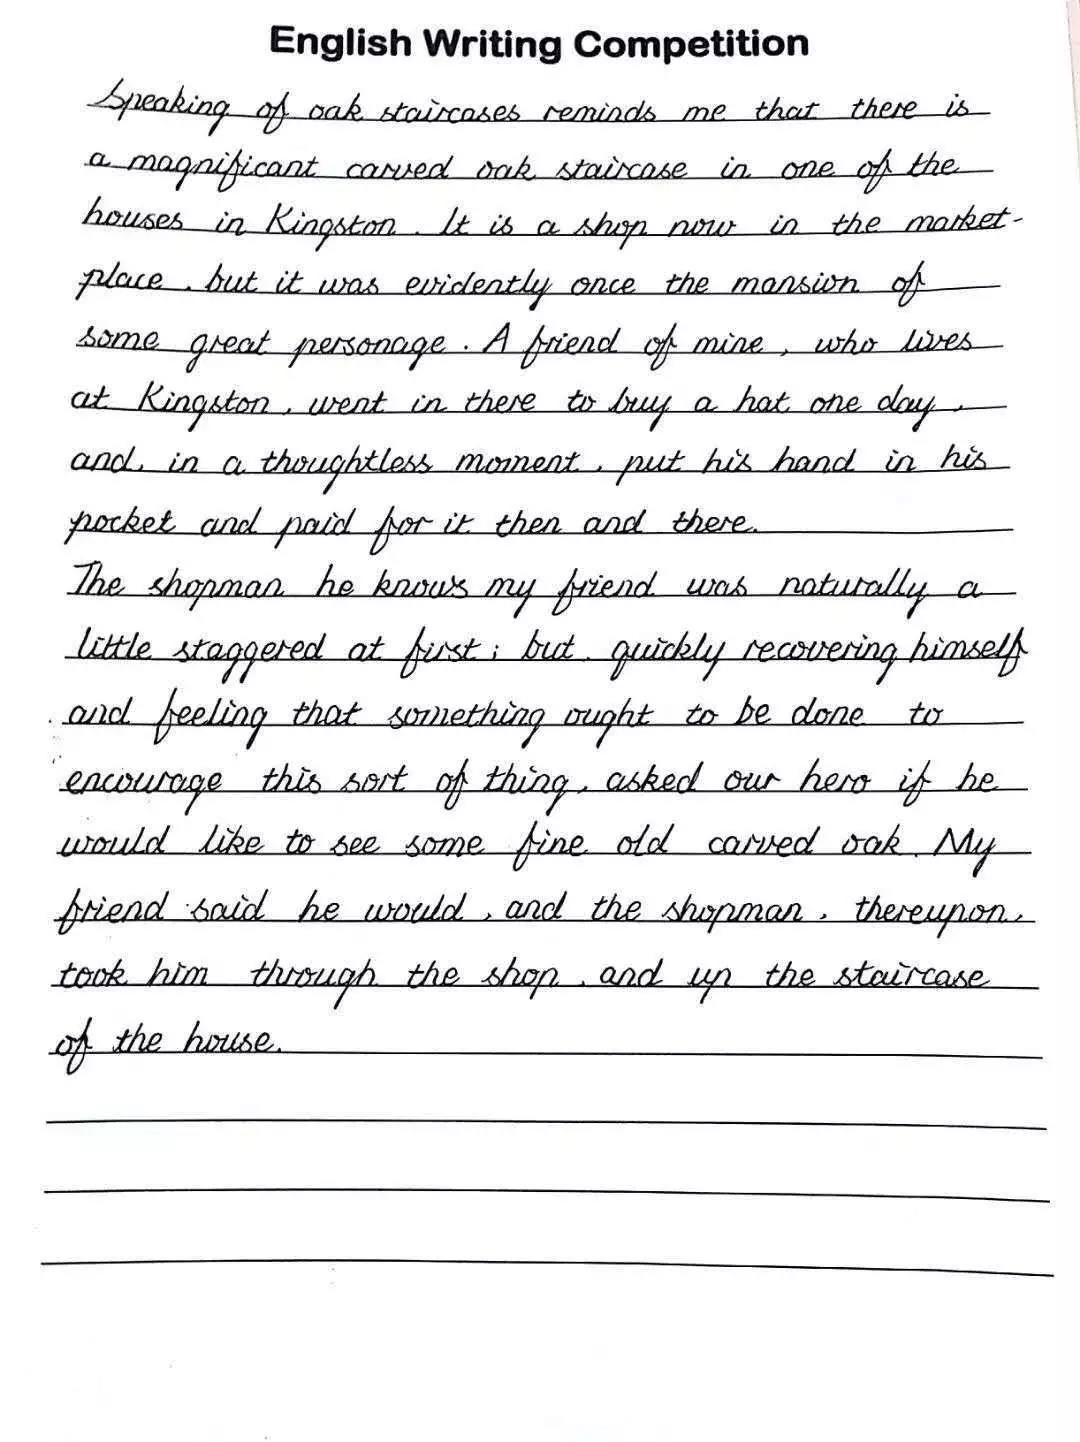 English Writing Competition
Speaking of oak staircases reminds me that there is
a magnificant carved oak staircase in one of the
houses in Kingston. It is a shop now in the market-
place, but it was evidently once the mansion of
some great personage. A friend of mine, who lives
at Kingston, went in there to buy a hat one day,
and, in a thoughtless moment, put his hand in his
pocket and paid for it then and there.
The shopman he knows my friend was naturally a
little staggered at first; but, quickly recovering himself
and feeling that something ought to be done to
encourage this sort of thing, asked our hero if he
would like to see some fine old carved oak. My
friend said he would, and the shopman, thereupon,
took him through the shop, and up the staircase
of the house.